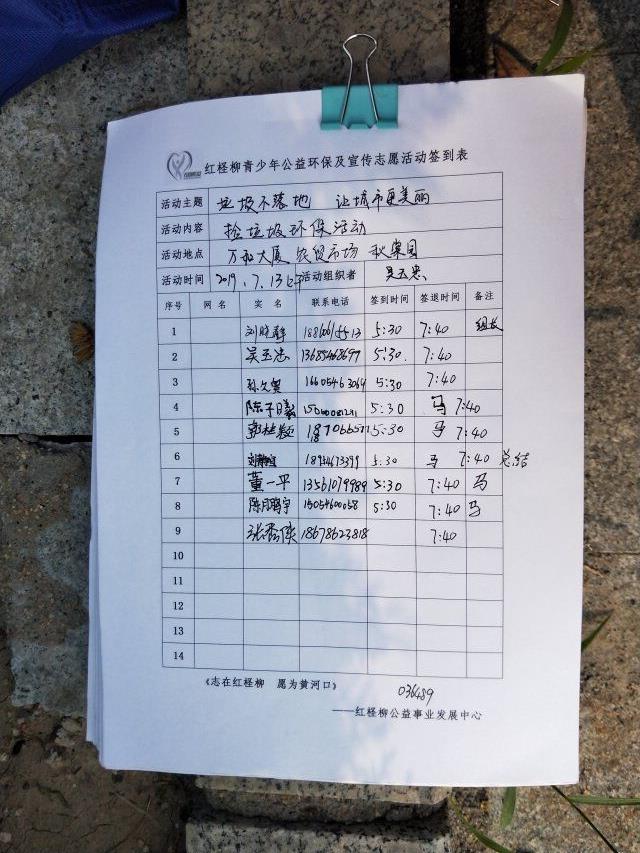 红柽柳青少年公益环保及宣传志愿活动签到表
活动主题 垃圾不落地 让城市更美丽
活动内容 捡垃圾环保活动
活动地点 万和大厦 农贸市场 秋棠园
活动时间 2019.7.13 活动组织者
序号 网名 实名 联系电话 签到时间 签退时间 备注
1 刘晓静 5:30 7:40 组长
2 13685468697 5:30. 7:40
3 16605463064 5:30 7:40
4 5:30 马 7:40
5 5:30 马 7:40
6 18954673399 5:30 马 7:40 总结
7 董一平 13561079989 5:30 7:40 马
8 陈鹏宇 15054600058 5:30 7:40 马
9 18678623818 7:40
10
11
12
13
14
《志在红柽柳 愿为黄河口》
036489
——红柽柳公益事业发展中心